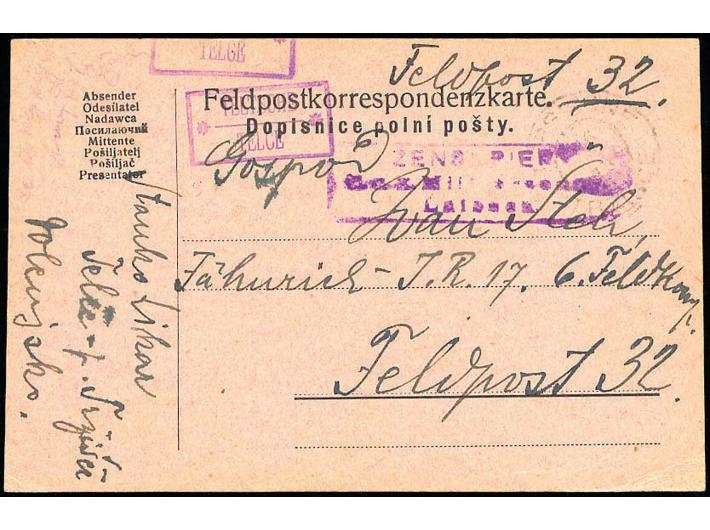 TELČE
Feldpost 32.
Absender
Odesílatel
Nadawca
Посилаючий
Mittente
Pošiljatelj
Pošiljač
Presentator
Feldpostkorrespondenzkarte.
Dopisnice polní pošty.
TELČE
ZENSURIERT
Laibach
Gospod
Ivan Steh,
Fähnrich - I. R. 17. 6. Feldkomp.
Feldpost 32.
Stanko Likar
Telče
Dolenjsko.